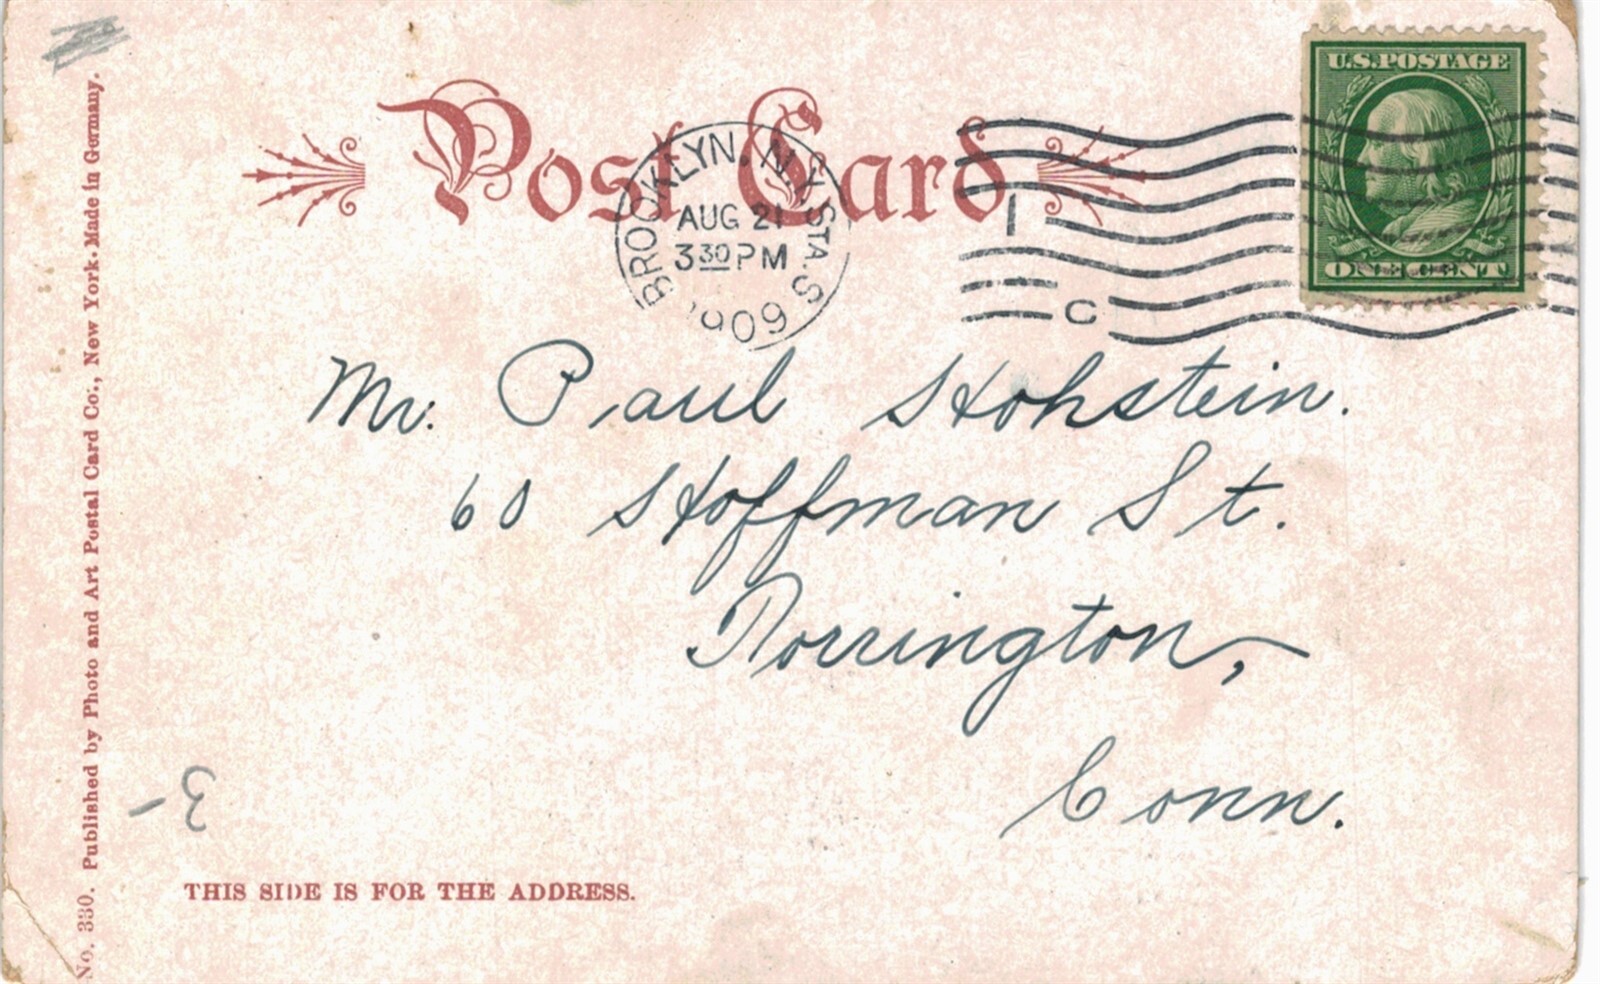 Post Card
U.S. POSTAGE
ONE CENT
BROOKLYN, N.Y. STA. S
AUG 21
3 30 PM
1909
1
C
Mr. Paul Hohstein.
60 Hoffman St.
Torrington,
Conn.
3-
THIS SIDE IS FOR THE ADDRESS.
No. 330. Published by Photo and Art Postal Card Co., New York. Made in Germany.